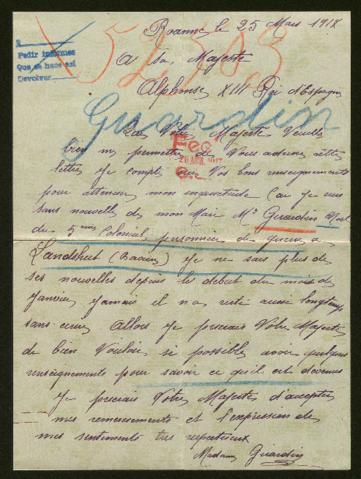 Roanne le 25 Mars 191
A sa Majesté
Alphonse XIII Roi d'Espagne
Pedir informes
Que se hace así
Devolver
Guardin
Que Votre Majesté Veuille
bien me permettre de Vous adresser cette
lettre Je compte sur Vos bons renseignements
pour atténuer mon inquiétude Car je suis
sans nouvelles de mon Mari Mr Girardin
du 5me Colonial personnier de guerre a
Landshut Je ne sais plus de
ses nouvelles depuis le debut du mois de
Janvier Jamais il na resté aussi longtemps
sans ecrire Allors Je prierais Votre Majesté
de bien Vouloir si possible avoir quelques
renseignements pour savoir ce qu'il est devenue
Je prierais Votre Majesté d'accepter
mes remerciements et l'expression de
mes sentiments tres respectueux
Madame Girardin